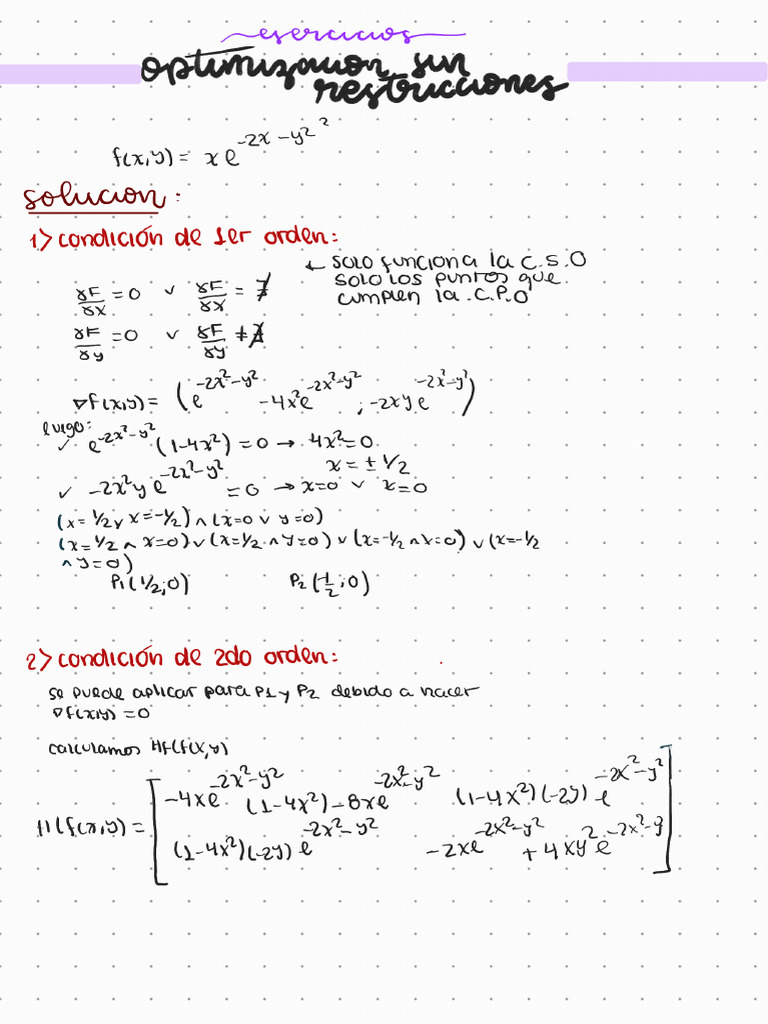 esercicios
optimización sin
restricciones
f(x,y) = x e^{-2x - y2^2}
solución:
1) condición de 1er orden:
← solo funciona la c.s.o
solo los puntos que
cumplen la .C.P.O
γF/γx = 0 ∨ γF/γx = ∄
γF/γy = 0 ∨ γF/γy ≠ ∄
∇f(x,y) = (e^{-2x²-y²} - 4x²e^{-2x²-y²} ; -2xy e^{-2x²-y²})
luego:
✓ e^{-2x²-y²} (1-4x²) = 0 → 4x²=0
x = ± 1/2
✓ -2x²y e^{-2x²-y²} = 0 → x=0 ∨ x=0
(x=1/2 ∨ x=-1/2) ∧ (x=0 ∨ y=0)
(x=1/2 ∧ x=0) ∨ (x=1/2 ∧ y=0) ∨ (x=-1/2 ∧ x=0) ∨ (x=-1/2
∧ y=0)
P1 (1/2;0) P2 (-1/2;0)
2) condición de 2do orden:
se puede aplicar para P1 y P2 debido a hacer
∇f(x,y) = 0
calculamos Hf(f(x,y)
H(f(x,y) = [ -4xe^{-2x²-y²} (1-4x²) - 8xe^{-2x²-y²} (1-4x²)(-2y) e^{-2x²-y²}
(1-4x²)(-2y) e^{-2x²-y²} -2xe^{-2x²-y²} + 4xy²e^{-2x²-y} ]